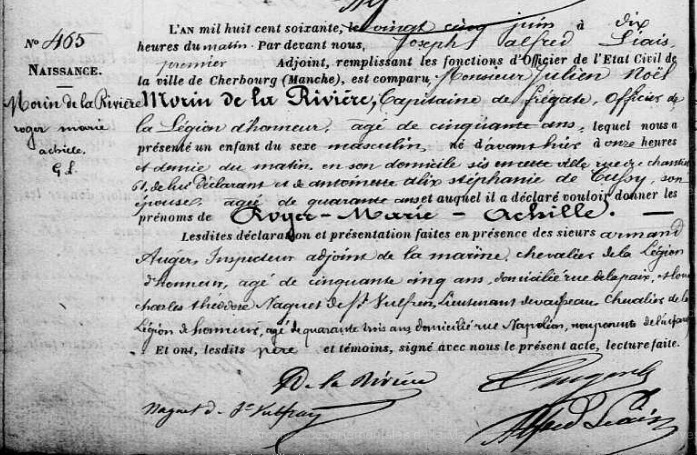 L'AN mil huit cent soixante, le vingt cinq juin à dix
heures du matin. Par devant nous, Joseph alfred Liais,
premier Adjoint, remplissant les fonctions d'Officier de l'Etat Civil de
la ville de Cherbourg (Manche), est comparu Monsieur Julien Noël
Morin de la Rivière, Capitaine de frégate, Officier de
la Légion d'honneur, agé de cinquante ans, lequel nous a
présenté un enfant du sexe masculin, né d'avant hier à onze heures
et demie du matin, en son domicile sis en cette ville rue de chantier
61, de lui déclarant et de antoinette alix stéphanie de Cussy, son
épouse, agée de quarante ans et auquel il a déclaré vouloir donner les
prénoms de Roger - Marie - Achille. —
Lesdites déclaration et présentation faites en présence des sieurs armand
Auger, Inspecteur adjoint de la marine, chevalier de la Légion
d'honneur, agé de cinquante cinq ans, domicilié rue de la paix, et
charles théodore Naguet de St Vulfran, Lieutenant de vaisseau Chevalier de la
Légion de honneur, agé de quarante trois ans domicilié rue Napoléon, non parents de
Et ont, lesdits père et témoins, signé avec nous le présent acte, lecture faite.
No 465
NAISSANCE.
Morin de la Rivière
roger marie
achille.
D de la Rivière
Naguet d. St Vulfran
Alfred Liais